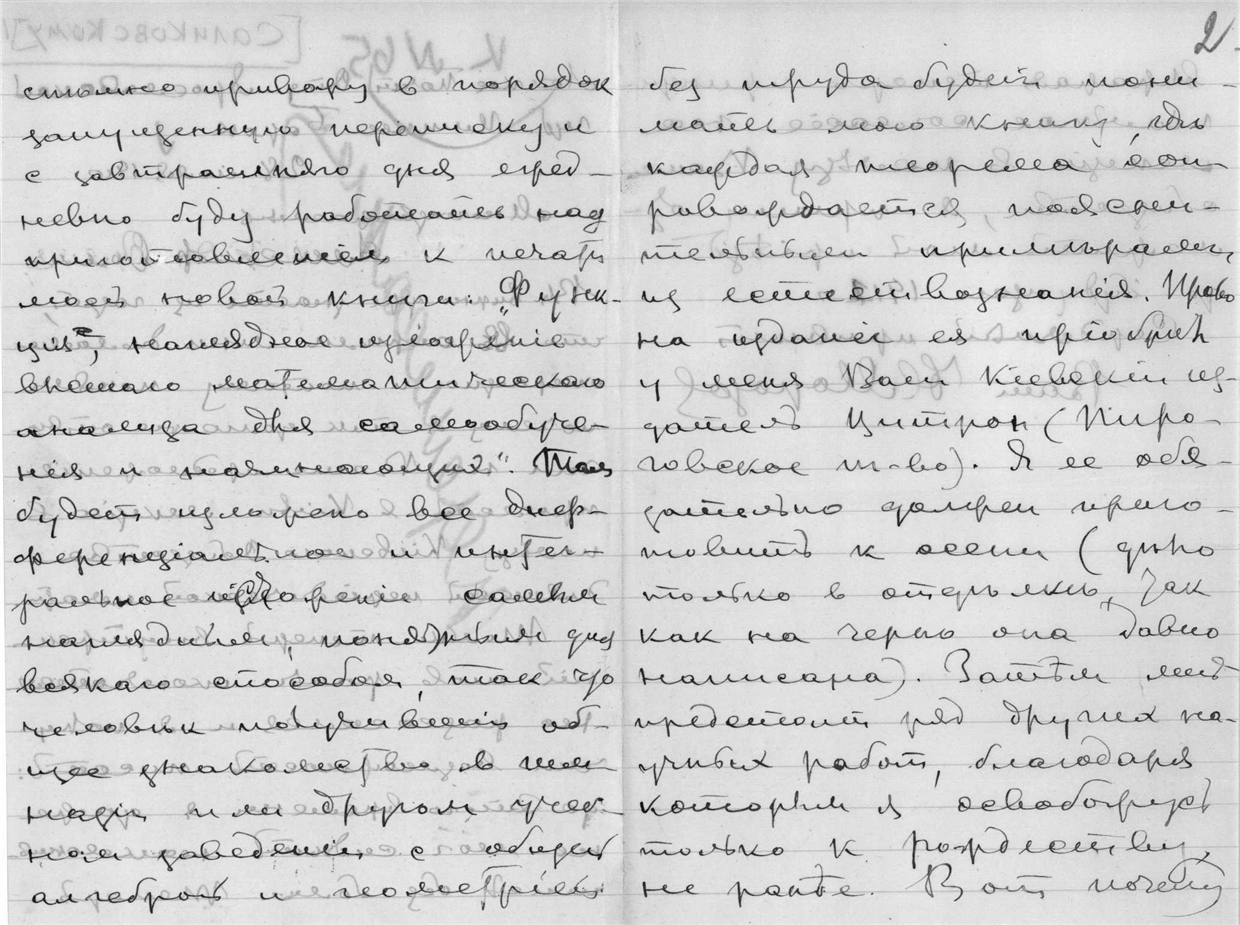 2.
привожу в порядок
запущенную переписку и
с завтрашняго дня ежед-
невно буду работать над
приготовлением к печати
моей новой книги: „Функ-
ция, наглядное изложение
высшаго математическаго
анализа для самообуче-
ния и начинающих". Там
будет изложено все диф-
ференциальное и интег-
ральное исчисление самым
наглядным, понятным для
всякаго способом, так что
человѣк получивший об-
щее знакомство в гим-
назіи или другом учеб-
ном заведеніи с общей
алгеброй и геометріей
без труда будет пони-
мать мою книгу, гдѣ
каждая теорема соп-
ровождается, поясни-
тельными примѣрами,
из естествознания. Право
на издание ея приобрѣл
у меня Ваш Кіевскій из-
датель Цитрон (Пиро-
говское т-во). Я ее обя-
зательно должен приго-
товить к осени (дѣло
только в отдѣлкѣ, так
как на черно она давно
написана). Затѣм мнѣ
предстоит ряд других на-
учных работ, благодаря
которым я освобожусь
только к рождеству,
не ранѣе. Вот почему